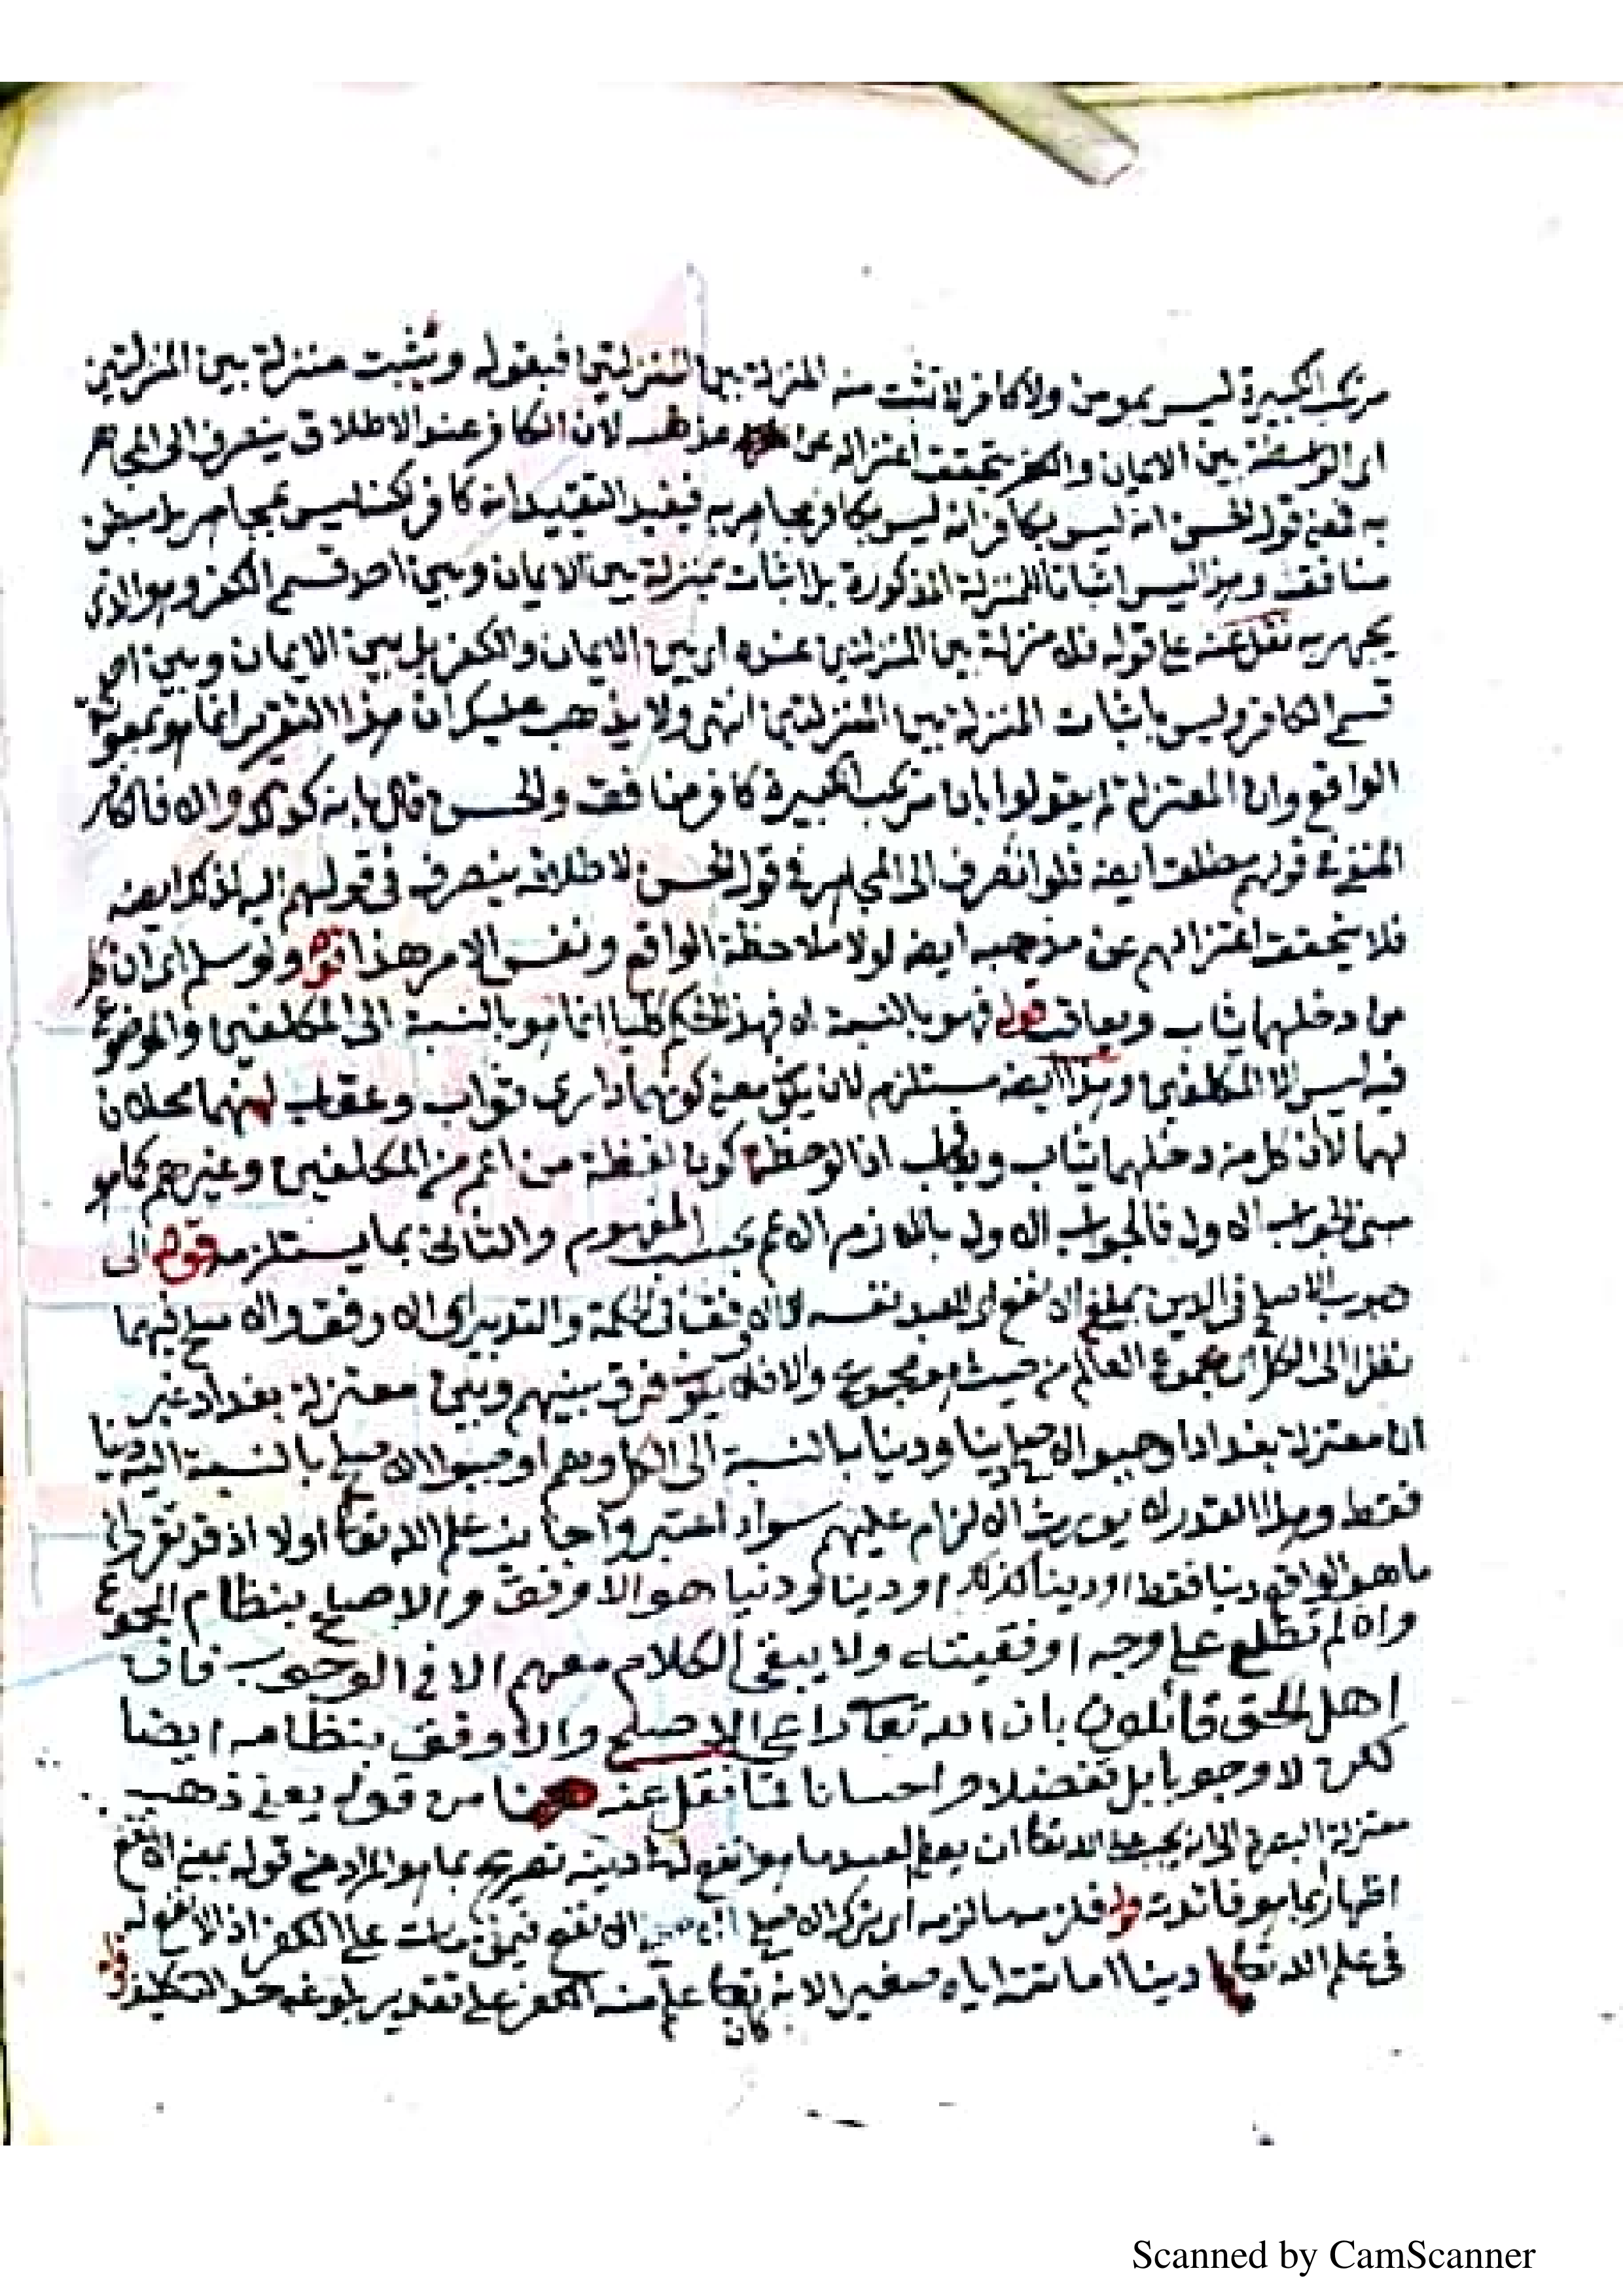 مرتكب الكبيرة ليس بمومن ولا كافر لا تثبت منه المنزلة بين المنزلتين فبقوله ويثبت منزلة بين المنزلتين
اى الواسطة بين الايمان والكفر يتحقق اعتزاله عن مذهبه لان الكافر عند الاطلاق ينصرف الى المجاهر
به فمعنى قول الحسن انه ليس بكافر انه ليس بكافر مجاهر به فيفيد التقييد انه كافر لكنه ليس بمجاهر بل مبطن
منافق وهذا ليس اثباتا للمنزلة المذكورة بل اثبات بمنزلة بين الايمان وبين احد قسم الكفر وهو الذى
يجهر به نقل عنه على قوله فله منزلة بين المنزلتين عنده اى بين الايمان والكفر بل بين الايمان وبين احد
قسم الكافر وليس باثبات المنزلة بين المنزلتين انتهى ولا يذهب عليك ان هذا التقرير انما هو بمعونة
الواقع وان المعتزلة لم يقولوا بان مرتكب الكبيرة كافر منافق والحسن قال بانه كذلك والا فالكافر
المنفى فى قولهم مطلق ايضه فلو انصرف الى المجاهر فى قول الحسن لاطلاقه ينصرف فى قولهم اليه لذلك ايضه
فلا يتحقق اعتزالهم عن مذهبه ايضه لولا ملاحظة الواقع ونفس الامر هذا قوله ولو سلم اى ان كل
من دخلهما يثاب ويعاقب قوله فهو بالنسبة اه فهذا الحكم كليا انما هو بالنسبة الى المكلفين والموضوع
فيه ليس الا المكلفين وهذا ايضه مستلزم لان يكون معنى كونهما دارى ثواب وعقاب انهما محلان
لهما لان كل من دخلهما يثاب ويعاقب اذا لوحظ كون لفظة من اعم من المكلفين وغيرهم كما هو
مبنى الجواب الاول فالجواب الاول بالازم الاعم بحسب المفهوم والثانى بما يستلزمه قوله الى
وجوب الاصلح فى الدين بمعنى الانفع اى للعبد نفسه لا الاوفق فى الحكمة والتدبير اى الاوفق والاصلح فيهما
نظرا الى الكل اى مجموع العالم من حيث هو مجموع والا فلا يكون فرق بينهم وبين معتزلة بغداد غير
ان معتزلة بغداد اوجبوا الاصلح دينا ودنيا بالنسبة الى الكل وهم اوجبوا الاصلح بالنسبة الى الدنيا
فقط وهذا القدر لا يورث الالزام عليهم سواء اعتبروا جانب علم الله تعا اولا اذ قد تقرر ان
ما هو الواقع دنيا فقط او دينا كذلك او دينا ودنيا هو الاوفق والاصلح بنظام المجموع
وان لم نطلع على وجه اوفقيته ولا يبقى الكلام معهم الا فى الوجوب فان
اهل الحق قائلون بان الله تعا راعى الاصلح والاوفق بنظامه ايضا
لكن لا وجوبا بل تفضلا واحسانا فما نقل عنه هنا من قوله يعنى ذهب
معتزلة البصرة الى انه يجب على الله تعا ان يعطى لعبده ما هو انفع له فى دينه تصريح بما هو المراد من قوله بمعنى الانفع
اظهارا بما هو فائدته قوله فلزمه ما لزمه اى بترك الاصلح الانفع فيمن مات على الكفر اذ الانفع له
فى علم الله تعا دينا اماتته اياه صغيرا لانه تعا كان علم منه الكفر على تقدير بلوغه حد التكليف قوله
Scanned by CamScanner